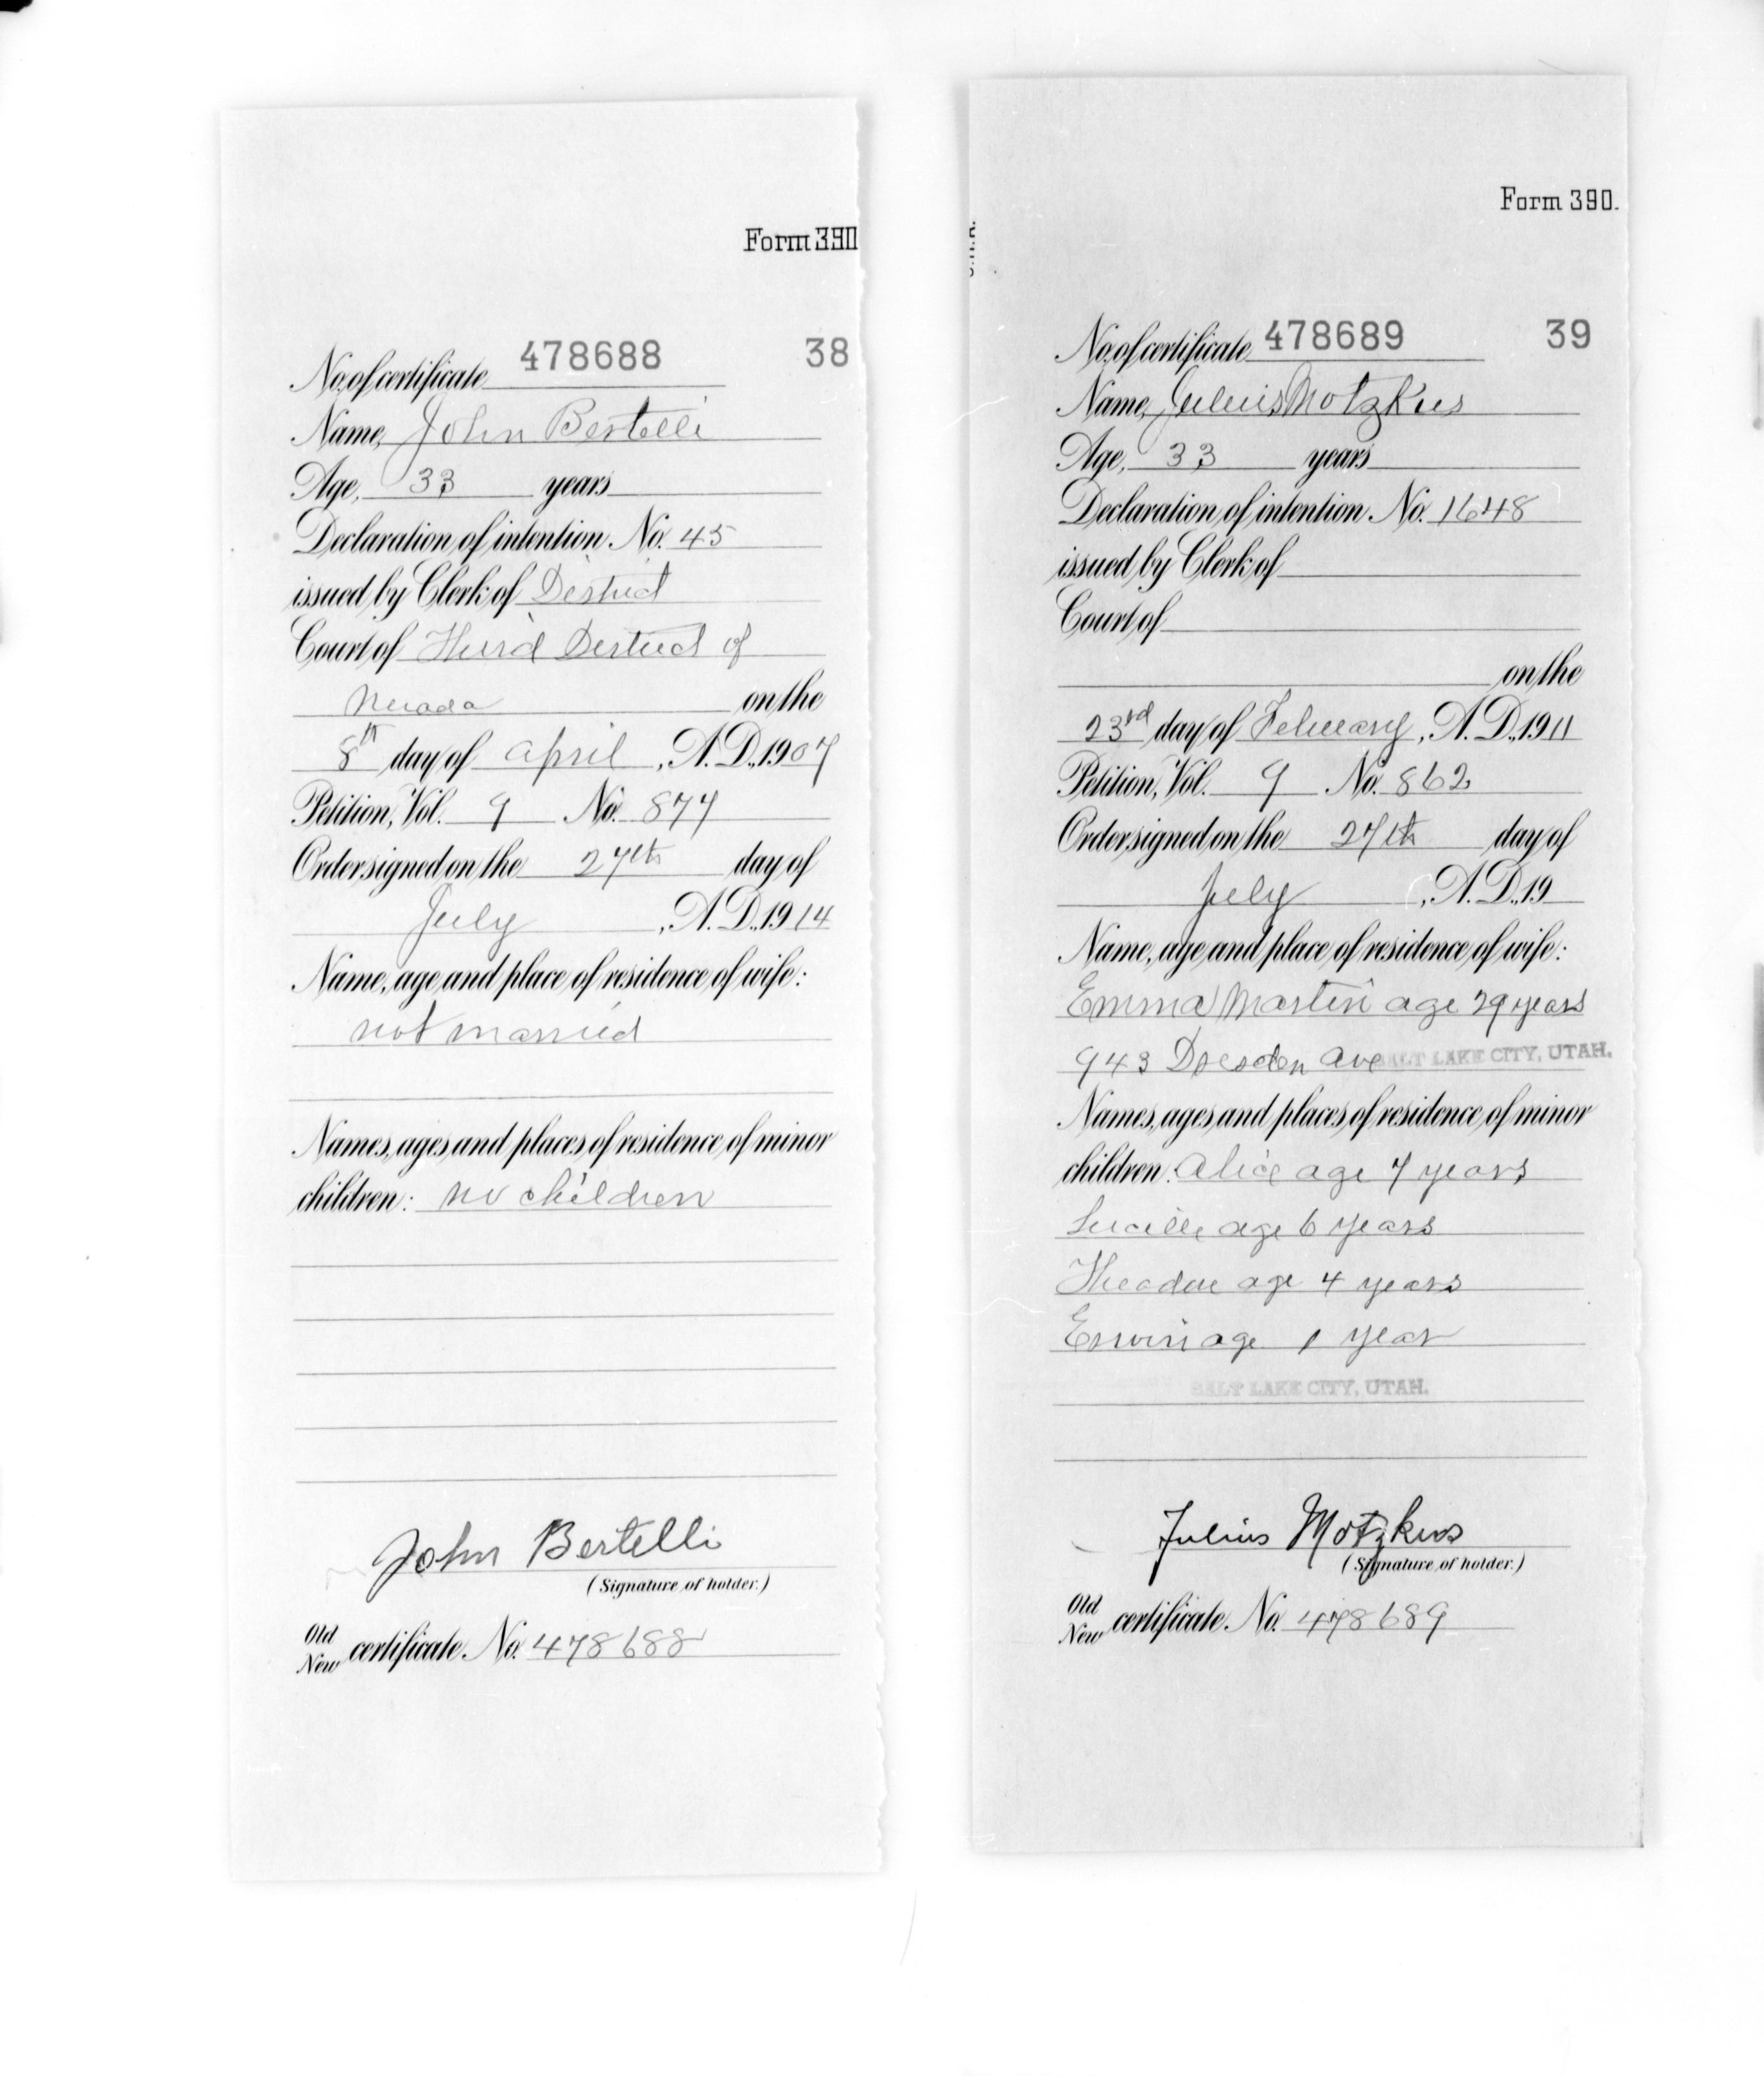 Form 390
No. of certificate 478688 38
Name, John Bertelli
Age, 33 years
Declaration of intention No. 45
issued by Clerk of District
Court of Third District of
Nevada on the
8th day of April, A.D., 1907
Petition, Vol. 9 No. 877
Order signed on the 27th day of
July, A.D., 1914
Name, age and place of residence of wife:
not married
Names, ages and places of residence of minor
children: no children
John Bertelli
(Signature of holder.)
Old
New certificate No. 478688
Form 390.
No. of certificate 478689 39
Name, Julius Motzkus
Age, 33 years
Declaration of intention No. 1648
issued by Clerk of
Court of
on the
23rd day of February, A.D., 1911
Petition, Vol. 9 No. 862
Order signed on the 27th day of
July, A.D., 19
Name, age and place of residence of wife:
Emma Martin age 29 years
943 Dresden Ave SALT LAKE CITY, UTAH.
Names, ages and places of residence of minor
children: Alice age 7 years
Lucille age 6 years
Theadore age 4 years
Erwin age 1 year
SALT LAKE CITY, UTAH.
Julius Motzkus
(Signature of holder.)
Old
New certificate No. 478689